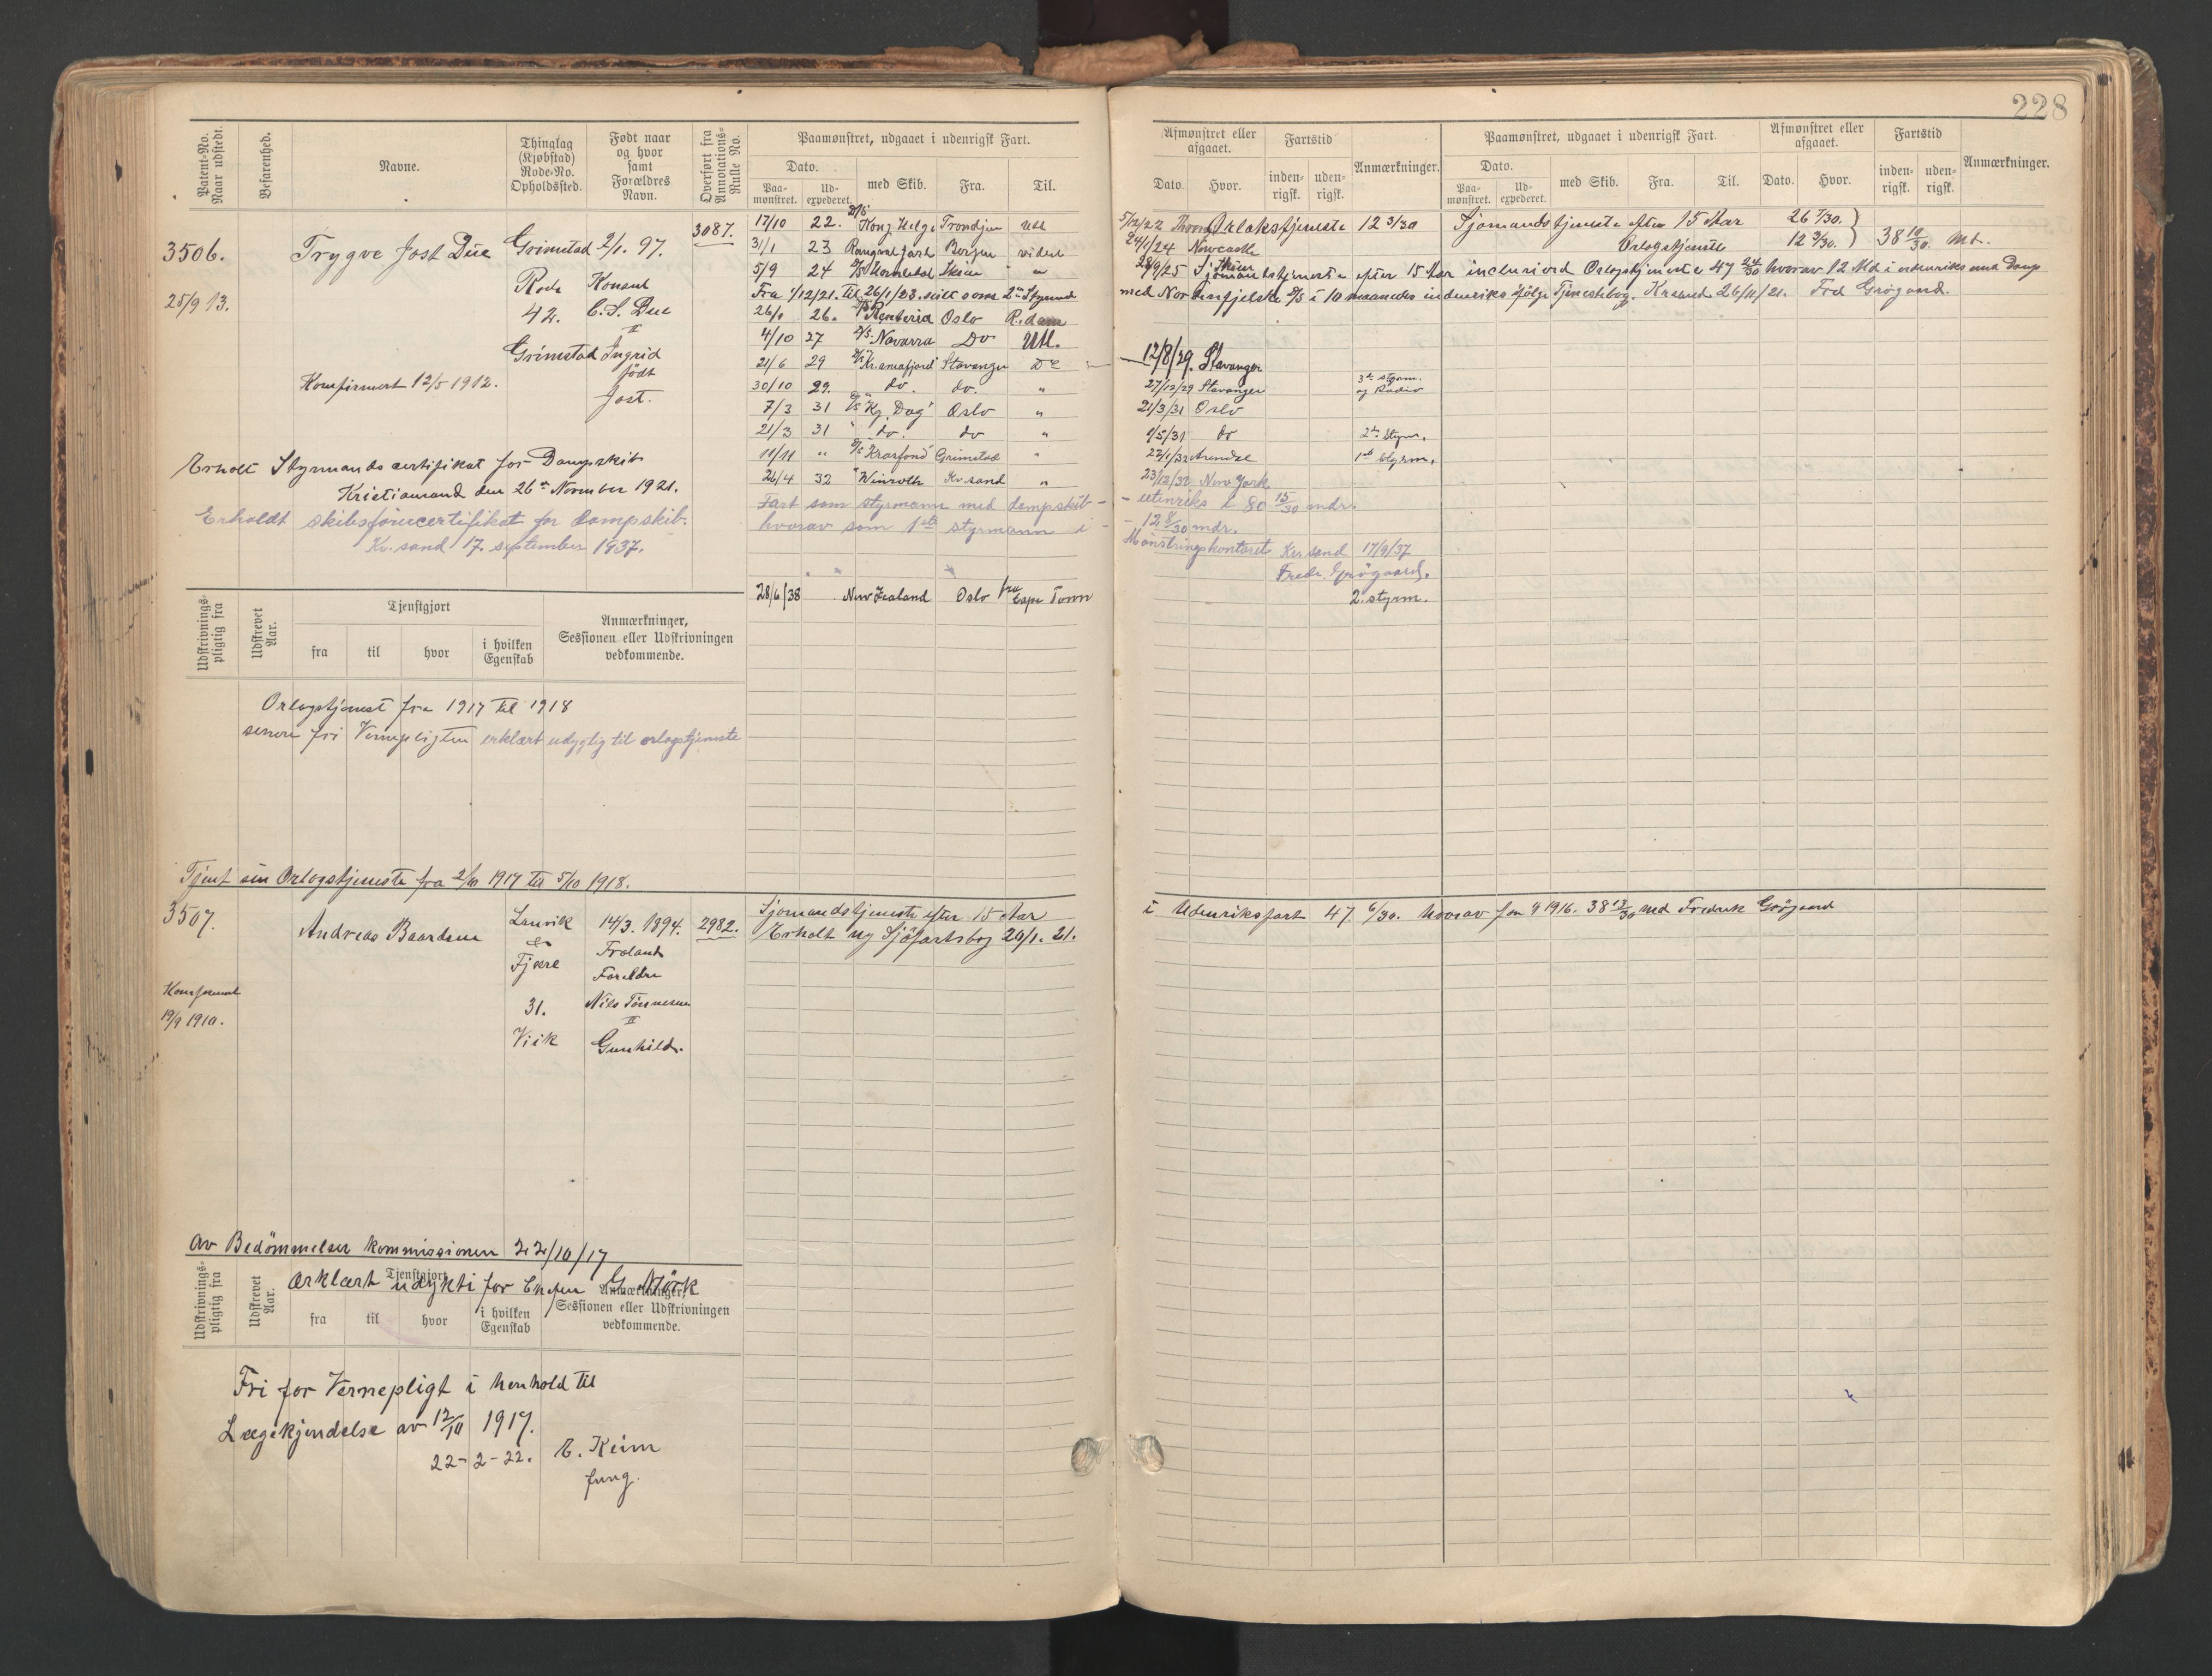 228
Patent-No. Naar udstedt.
Befarenhed.
Navne.
Thinglag (Kjøbstad) Rode-No. Opholdssted.
Født naar og hvor samt Forældres Navn.
Overført fra Annotations-Rulle No.
Paamønstret, udgaaet i udenrigsk Fart.
Dato.
Paa-mønstret.
Ud-expederet.
med Skib.
Fra.
Til.
Afmønstret eller afgaaet.
Dato.
Hvor.
Fartstid
inden-rigsk.
uden-rigsk.
Anmærkninger.
Paamønstret, udgaaet i udenrigsk Fart.
Dato.
Paa-mønstret.
Ud-expederet.
med Skib.
Fra.
Til.
Afmønstret eller afgaaet.
Dato.
Hvor.
Fartstid
inden-rigsk.
uden-rigsk.
Anmærkninger.
3506.
25/9 13.
Trygve Jost Due
Konfirmert 12/5 1912.
Grimstad
Rode
42.
Grimstad
2/1. 97.
Konsul
C. S. Due
II
Ingrid
født
Jost.
3087.
Erholdt Styrmandscertifikat for Dampskib
Kristiansand den 26de November 1921.
Erholdt skibsførercertifikat for dampskib.
Kr.sand 17. september 1937.
17/10 22. D/S Kong Helge Trondhjem Utl
31/1 23 Ragnvald Jarl Bergen videst
5/9 24 D/S Skien " "
Fra 1/12/21. til 26/1/23. seilt som 2den Styrmd
26/1 26. Renteria Oslo R.dam
4/10 27 D/S Navarra Do Utl.
21/6 29 D/S Kr.aniafjord Stavanger Do
30/10 29. do. do. "
7/3 31 D/S "Kg. Dag" Oslo "
21/3 31 " do. do "
11/11 " D/S Krosfond Grimstad "
26/4 32 " Winroth Kr.sand "
Fart som styrmann med dampskib -
hvorav som 1ste styrmann i -
28/6/38 New Zealand Oslo fra Cape Town
5/12/22 Orlogstjeneste 12 3/30
24/1/24 Newcastle
28/9/25 Skien
Sjømandstjeneste efter 15 Aar 26 7/30.
Orlogstjeneste 12 3/30. } 38 10/30. Md.
Sjømandstjeneste efter 15 Aar inclusived Orlogstjeneste 47 24/30 hvorav 12 Md i udenriks med Damp
med Nordenfjelske D/S i 10 maaneder indenriks ifølge Tjenestebog. Krsand 26/11/21. Frd Grøgaard.
12/8/29. Stavanger
27/12/29 Stavanger 3die styrm. og Radio
21/3/31 Oslo
1/5/31 do 2den Styrm.
22/1/32 Arendal 1ste Styrm.
23/12/32 New York
- utenriks i 80 15/30 mdr.
- 12 8/30 mdr.
Mønstringskontoret Kr.sand 17/9/37
Fredr. Grøgaard.
2. styrm.
Udskrivnings-pligtig fra
Udskrevet Aar.
Tjenstgjort
fra
til
hvor
i hvilken Egenskab
Anmærkninger, Sessionen eller Udskrivningen vedkommende.
Orlogstjenest fra 1917 til 1918
senere fri Vernepligten erklært udygtig til orlogstjeneste
Tjent sin Orlogstjeneste fra 2/10 1917 til 5/10 1918.
3507.
Konfirmert
19/9 1910.
Andreas Baardsen
Landvik
&
Fjære
31.
Viik
14/3. 1894.
Froland
Forældre
Nils Tønnesen
II
Gunhild.
2982.
Sjømandstjeneste efter 15 Aar
i Udenriksfart 47. 6/30. hvorav fra 4 1916. 38 13/30 md Fredrik Grøgaard
Erholdt ny Sjøfartsbog 20/1. 21.
Av Bedømmelser kommissionen 22/10/17
ærklært udykti for G. Mörk
Udskrivnings-pligtig fra
Udskrevet Aar.
Tjenstgjort
fra
til
hvor
i hvilken Egenskab
Anmærkninger, Sessionen eller Udskrivningen vedkommende.
Fri for Vernepligt i henhold til
Lægekjendelse av 12/10 1917.
22-2-22. E. Keim
fung.